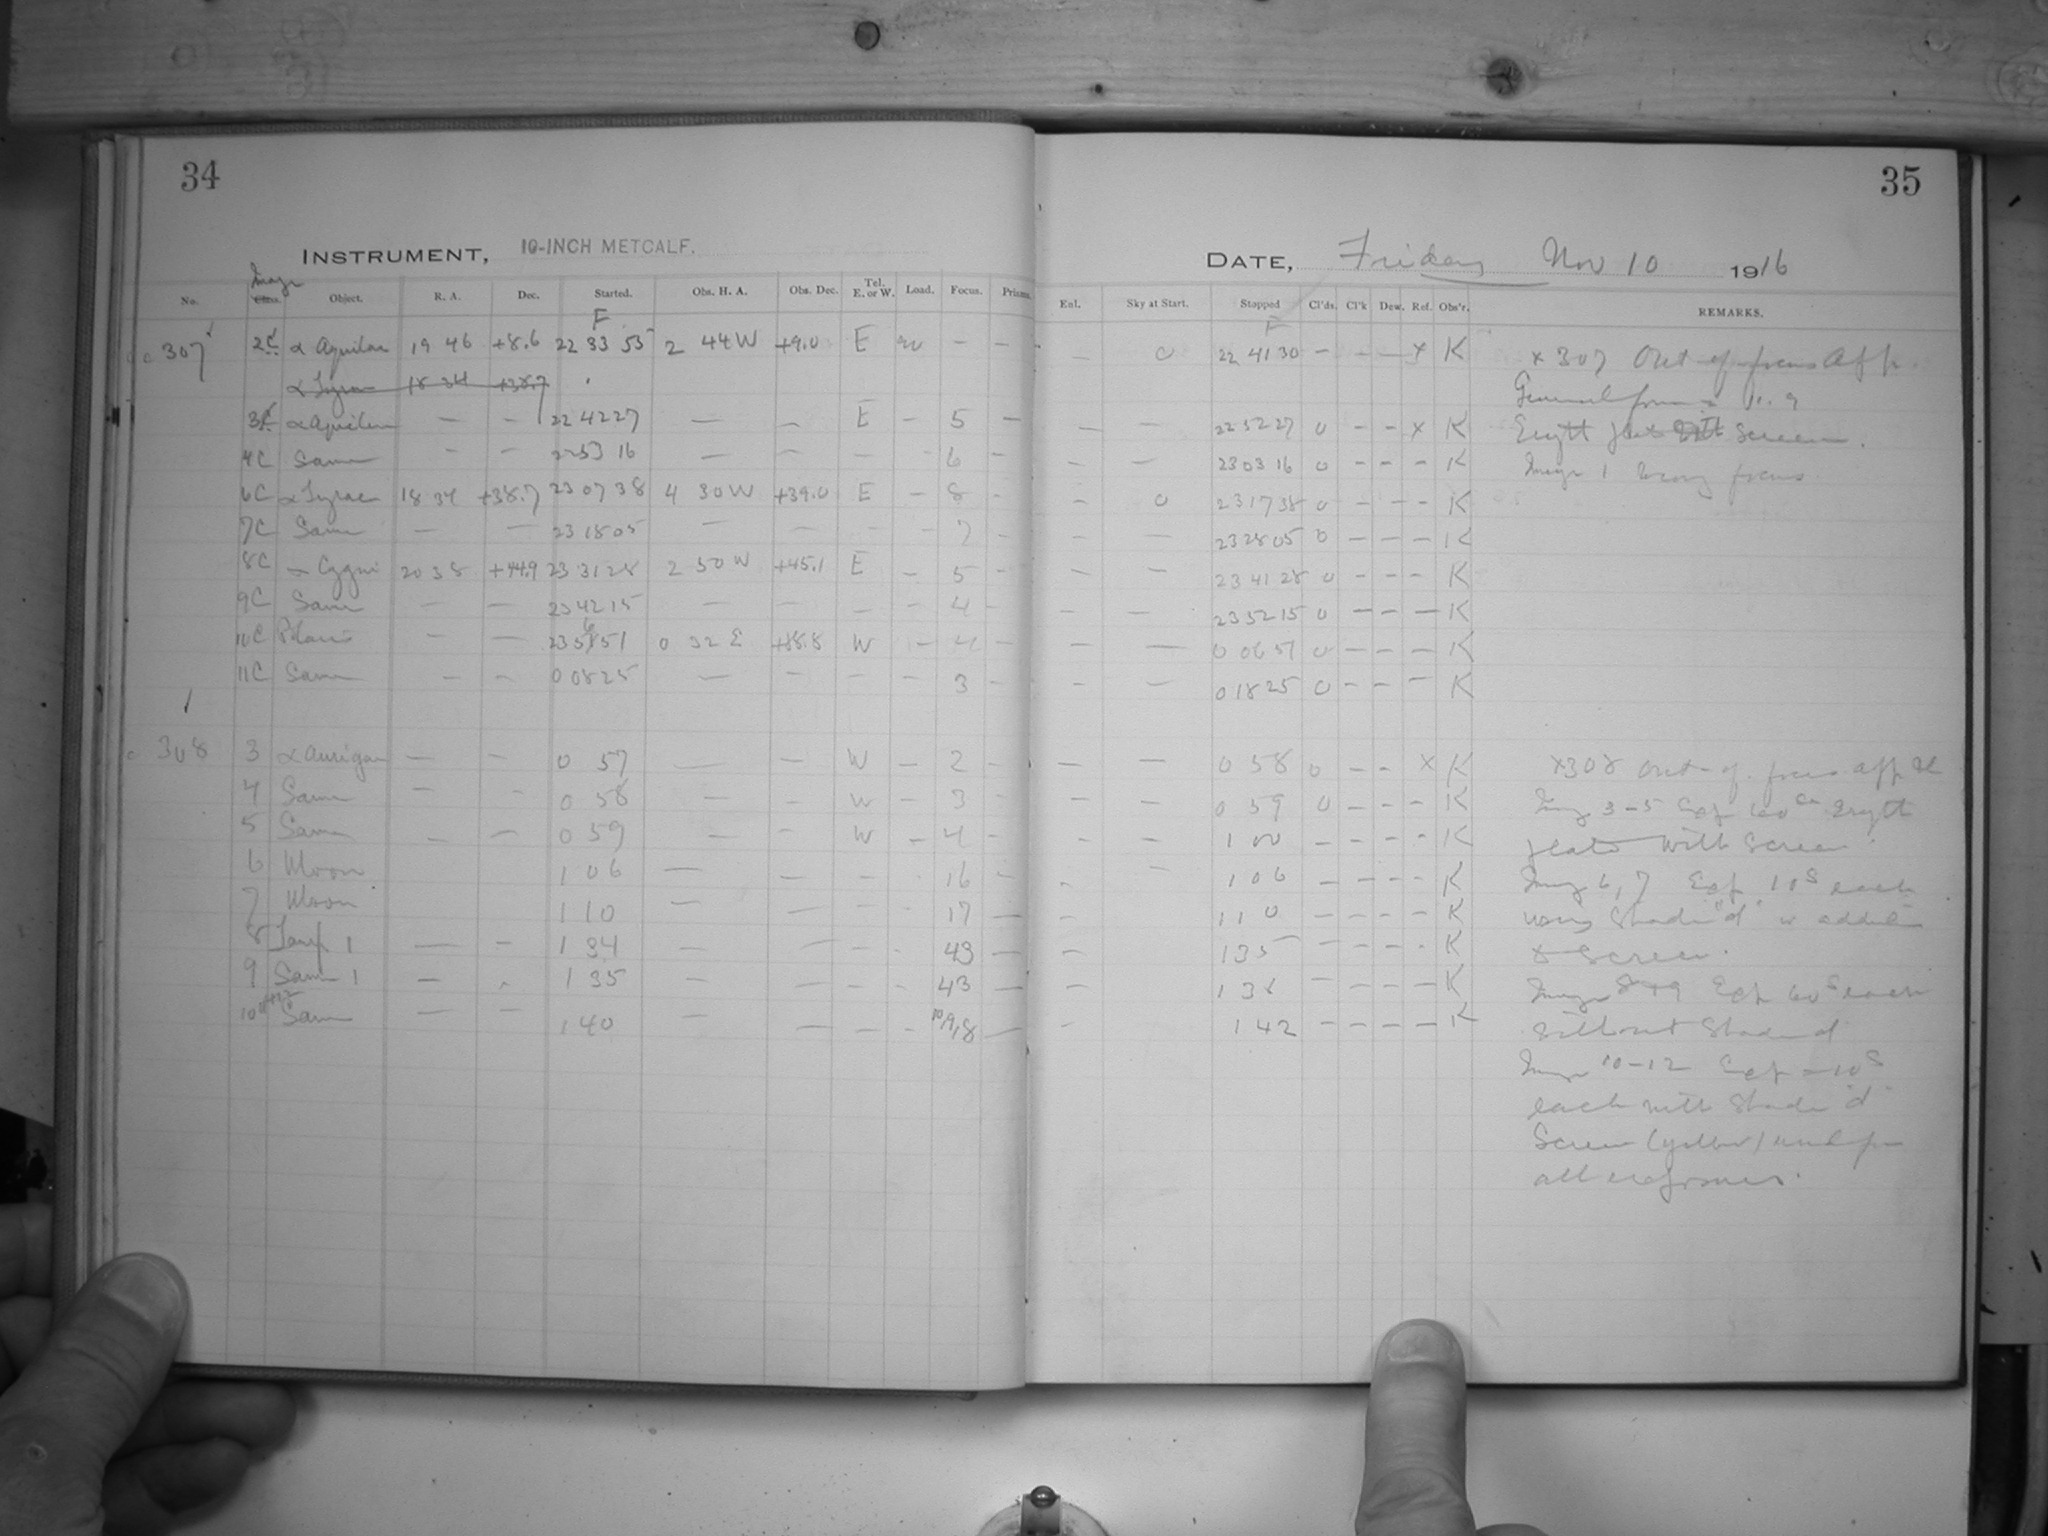 34
INSTRUMENT, 10-INCH METCALF.
Image
No. Class. Object. R. A. Dec. Started. Obs. H. A. Obs. Dec. Tel. E. or W. Load. Focus. Prism.
F
c 307 2C α Aquilae 19 46 +8.6 22 33 55 2 44 W +9.0 E — —
α Lyrae 18 34 +38.7
3C α Aquilae — — 22 42 27 — — E — 5 —
4C Same — — 22 53 16 — — — — 6 —
6C α Lyrae 18 34 +38.7 23 07 38 4 30 W +39.0 E — 8 —
7C Same — — 23 18 05 — — — — 7 —
8C α Cygni 20 38 +44.9 23 31 28 2 50 W +45.1 E — 5 —
9C Same — — 23 42 15 — — — — 4 —
10C Polaris — — 23 56 51 0 32 E +88.8 W — 4 —
11C Same — — 0 08 25 — — — — 3 —
c 308 3 α Aurigae — — 0 57 — — W — 2 —
4 Same — — 0 58 — — W — 3 —
5 Same — — 0 59 — — W — 4 —
6 Moon 1 06 — — — — 16 —
7 Moon 1 10 — — — — 17 —
8 Lamp 1 — — 1 34 — — — — 43 —
9 Same 1 — — 1 35 — — — — 43 —
10 11 12 Same — — 1 40 — — — — 10,9,8 —
35
DATE, Friday Nov 10 1916
Enl. Sky at Start. Stopped Cl'ds. Cl'k Dew. Ref. Obs'r. REMARKS.
F
— 0 22 41 30 — — — x K x 307 Out of focus
General focus
— — 22 52 27 0 — — x K Eryth plate with Screen.
— — 23 03 16 0 — — — K Image 1 wrong focus
— 0 23 17 38 0 — — — K
— — 23 28 05 0 — — — K
— — 23 41 28 0 — — — K
— — 23 52 15 0 — — — K
— — 0 06 51 0 — — — K
— — 0 18 25 0 — — — K
— — 0 58 0 — — x K x308 Out of focus
— — 0 59 0 — — — K Image 3-5 Exp 60 Eryth
— — 1 00 — — — — K plate with Screen
— — 1 06 — — — — K Image 6, 7 Exp 10s each
— 1 10 — — — — K using Shade "d" in addition
— 1 35 — — — — K to Screen.
— 1 36 — — — — K Image 8+9 Exp 60s each
— 1 42 — — — — K without Shade d
Image 10-12 Exp = 10s
each with Shade d
Screen (yellow) used for
all exposures.